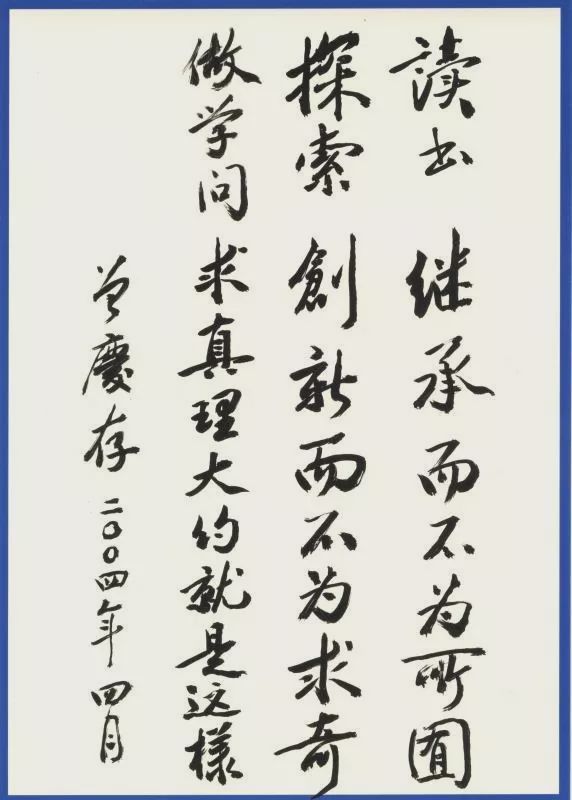 讀书 继承而不为所囿
探索 創新而不为求奇
做学问 求真理大约就是这樣
曾慶存 二〇〇四年 四月